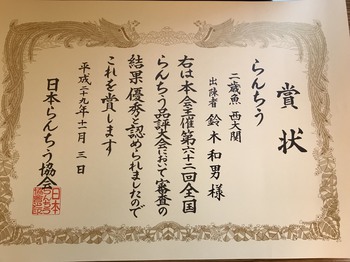 賞状
らんちう
二歳魚 西大関
出陳者 鈴木和男様
右は本会主催第六十二回全国
らんちう品評大会において審査の
結果優秀と認められましたので
これを賞します
平成二十九年十一月三日
日本らんちう協会